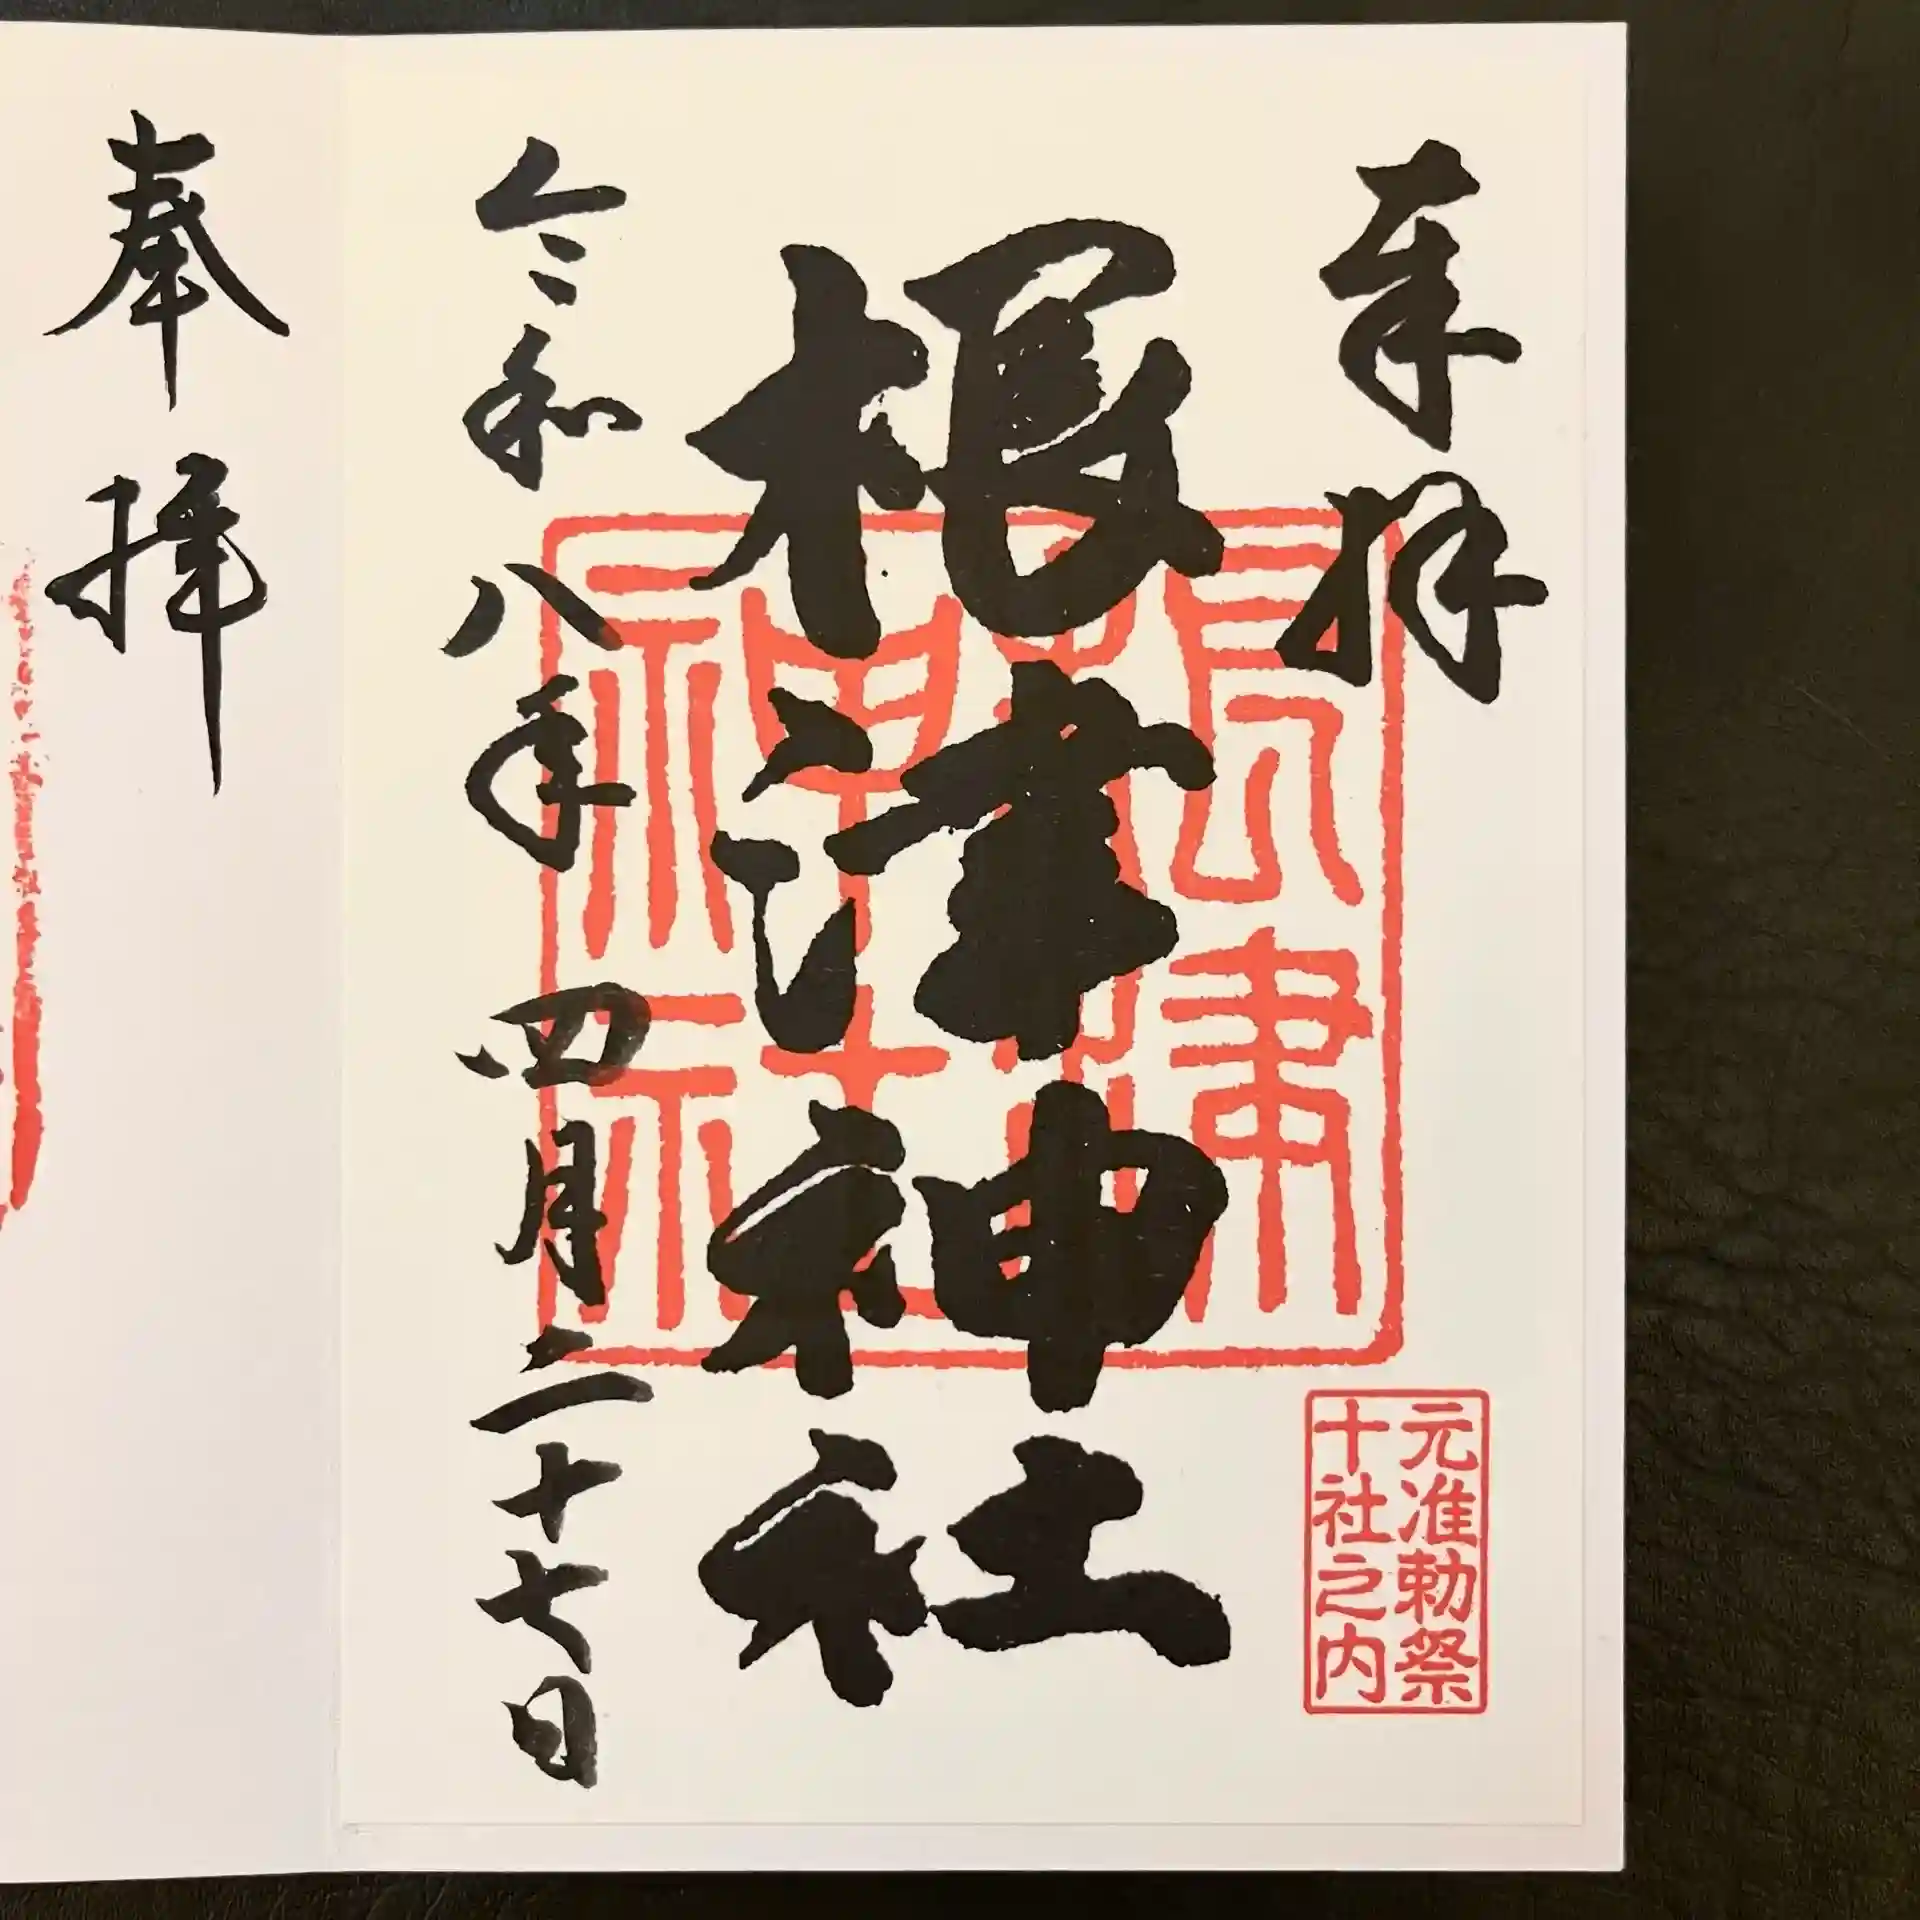 奉拝
元准勅祭
十社之内
根津神社
根津
神社
令和八年四月二十七日
奉拝